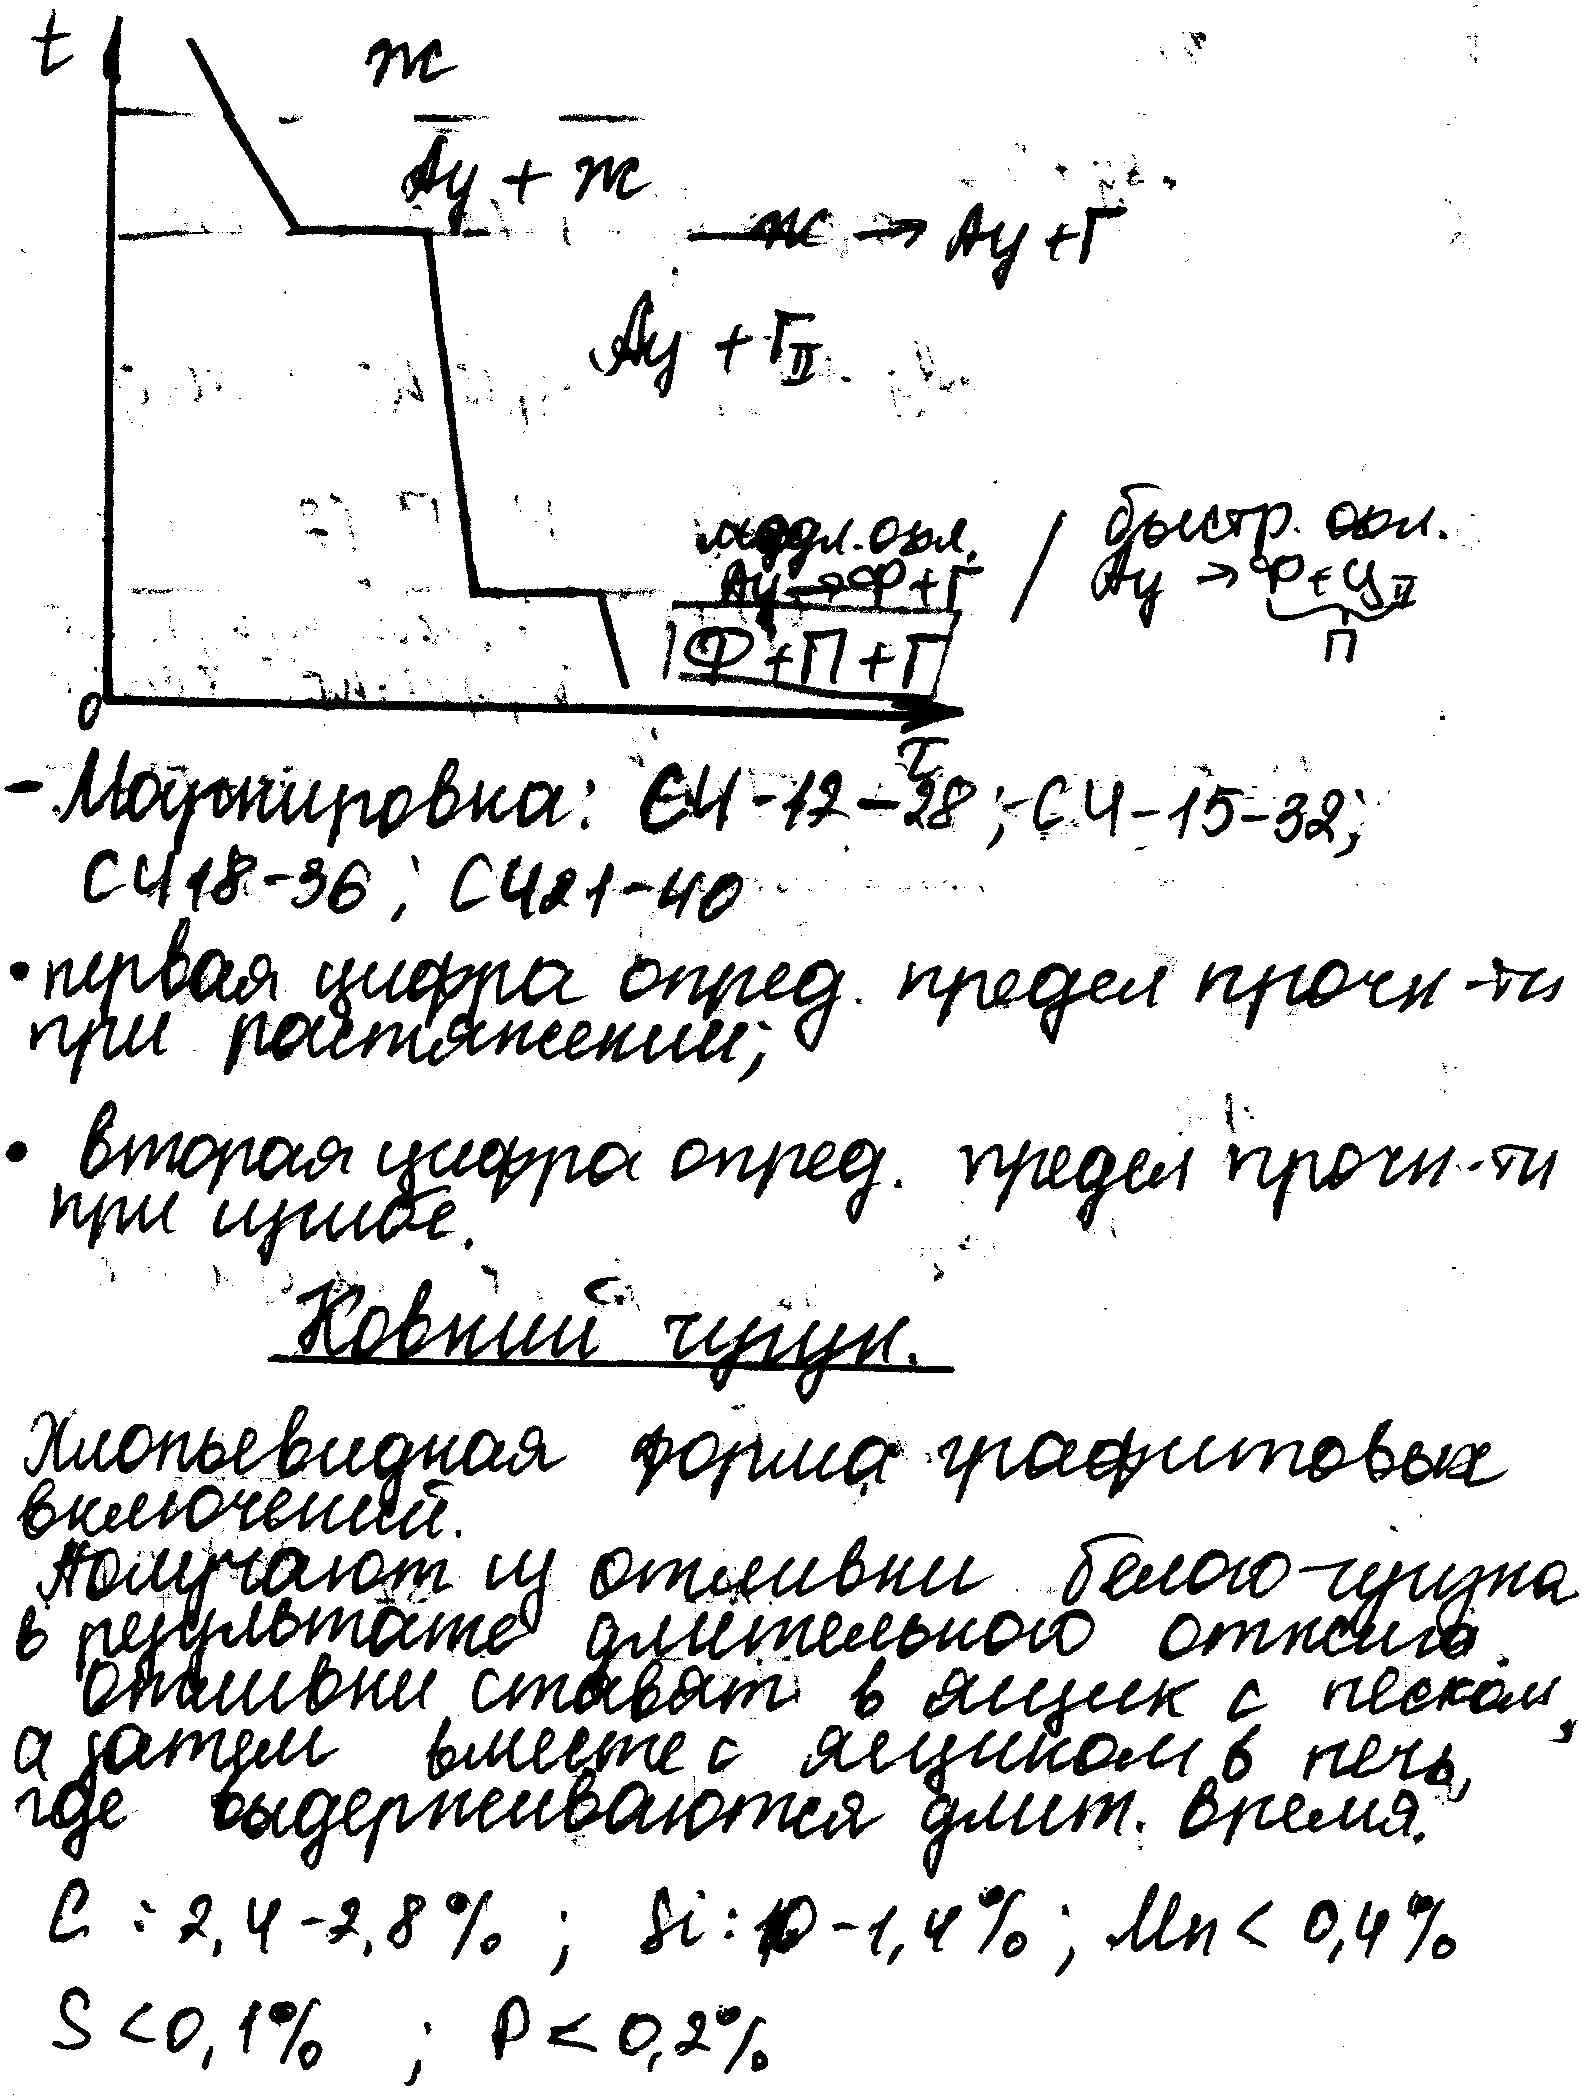 t
Ж
Ау + Ж
Ж → Ау + Г
Ау + Г II
медл. охл. / быстр. охл.
Ау → Ф + Г Ау → Ф + Ц II
Ф + П + Г П
0
τ
- Маркировка: СЧ-12-28; СЧ-15-32;
СЧ18-36; СЧ21-40
• первая цифра опред. предел прочн-ти
при растяжении;
• вторая цифра опред. предел прочн-ти
при изгибе.
Ковкий чугун.
Хлопьевидная форма графитовых
включений.
Получают из отливки белого чугуна
в результате длительного отжига.
Отливки ставят в ящик с песком,
а затем вместе с ящиком в печь,
где выдерживаются длит. время.
C : 2,4-2,8% ; Si : -1,4% ; Mn < 0,4%
S < 0,1% ; P < 0,2%